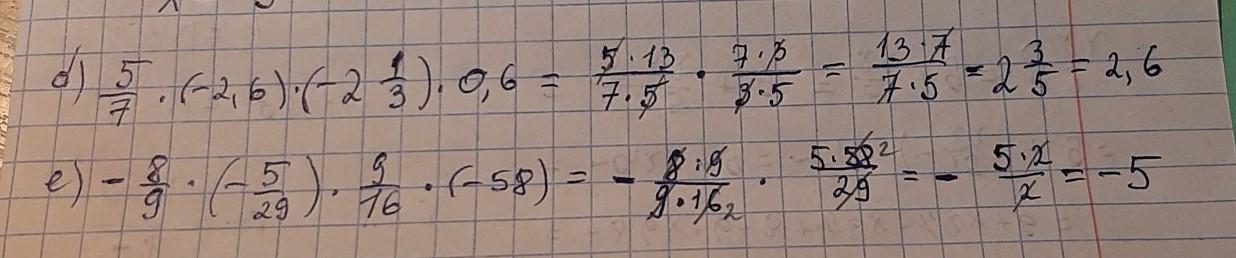 d) 5/7 · (-2,6) · (-2 1/3) · 0,6 = 5·13/7·5 · 7·3/3·5 = 13·7/7·5 = 2 3/5 = 2,6
e) - 8/9 · (- 5/29) · 9/16 · (-58) = - 8·9/9·16 2 · 5·58 2/29 = - 5·2/2 = -5